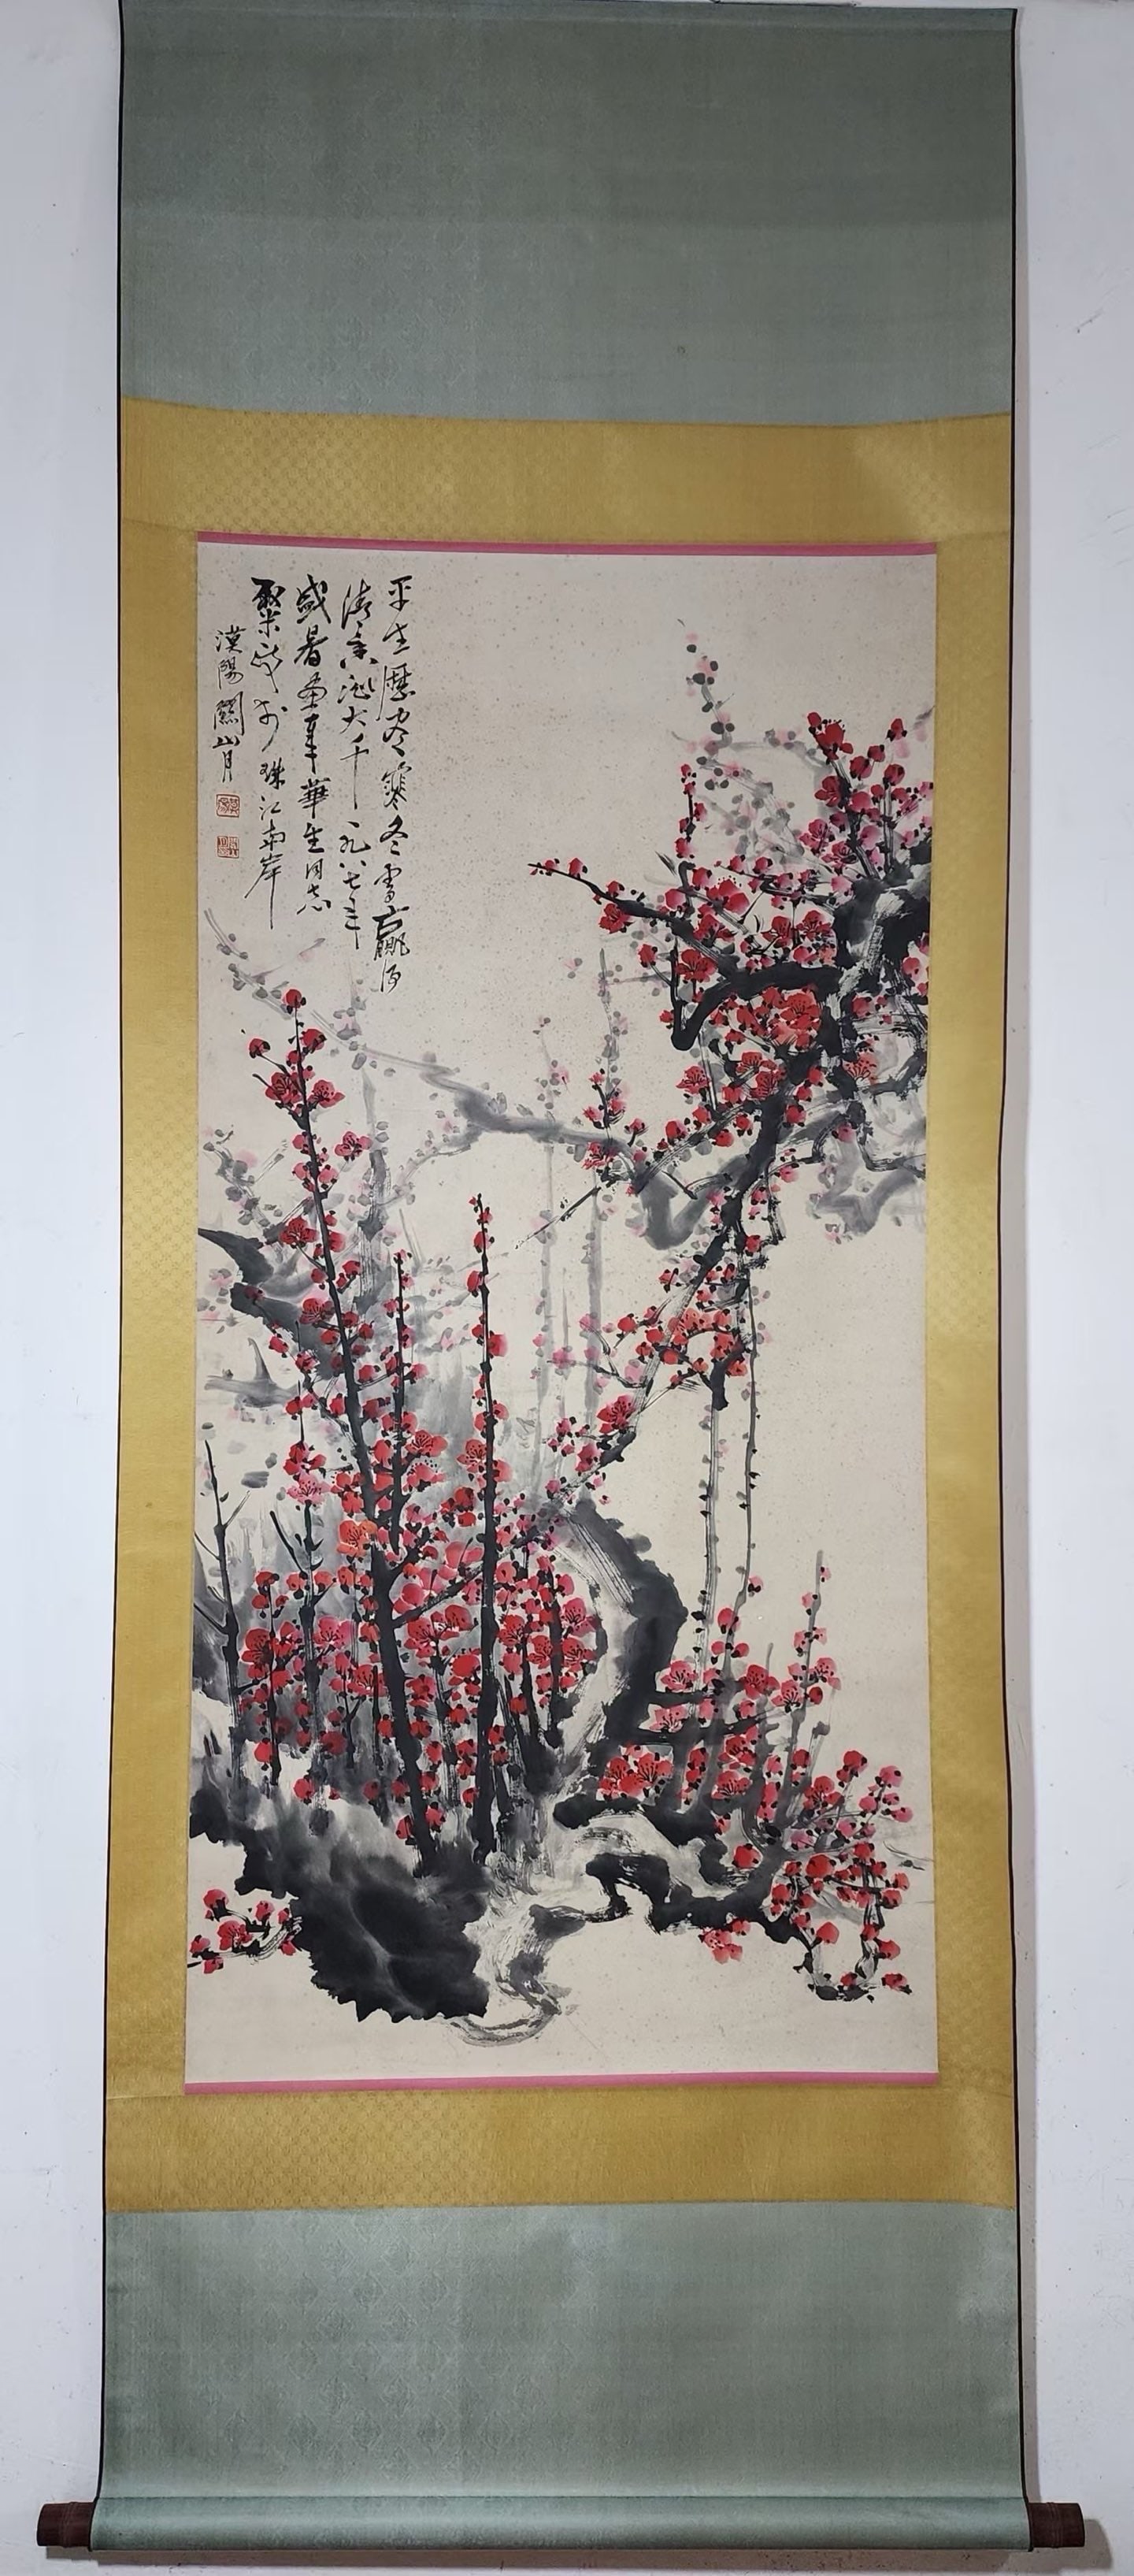 平生歷盡寒冬雪贏得
清香滿大千一九八七年
盛暑畫奉華生同志
粲政於珠江南岸
漠陽關山月